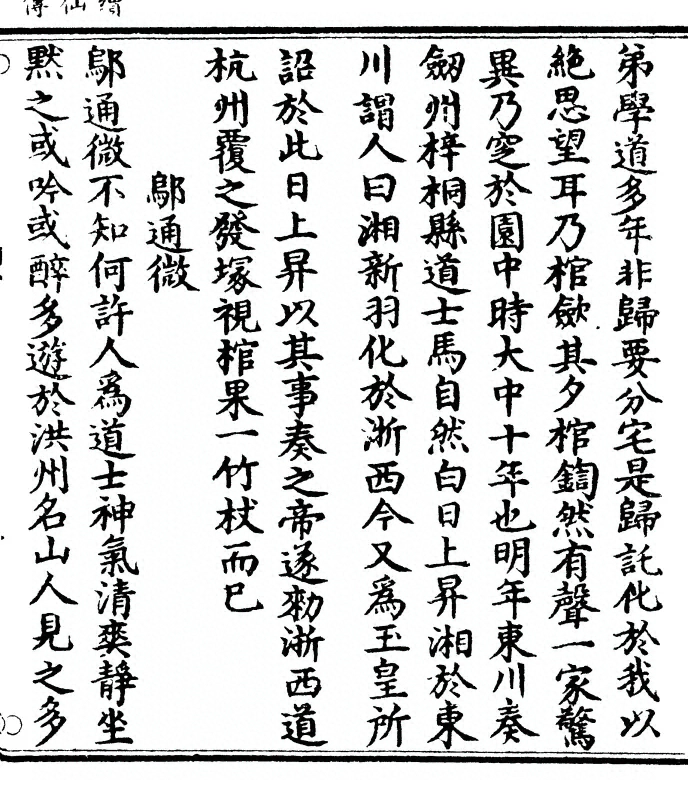 弟學道多年非歸要分宅是歸託化於我以
絶思望耳乃棺斂其夕棺鍧然有聲一家驚
異乃窆於園中時大中十年也明年東川奏
劒州梓桐縣道士馬自然白日上昇湘於東
川謂人曰湘新羽化於浙西今又爲玉皇所
詔於此日上昇以其事奏之帝遂勑浙西道
杭州覆之發塚視棺果一竹杖而已
鄔通微
鄔通微不知何許人爲道士神氣清爽靜坐
黙之或吟或醉多遊於洪州名山人見之多